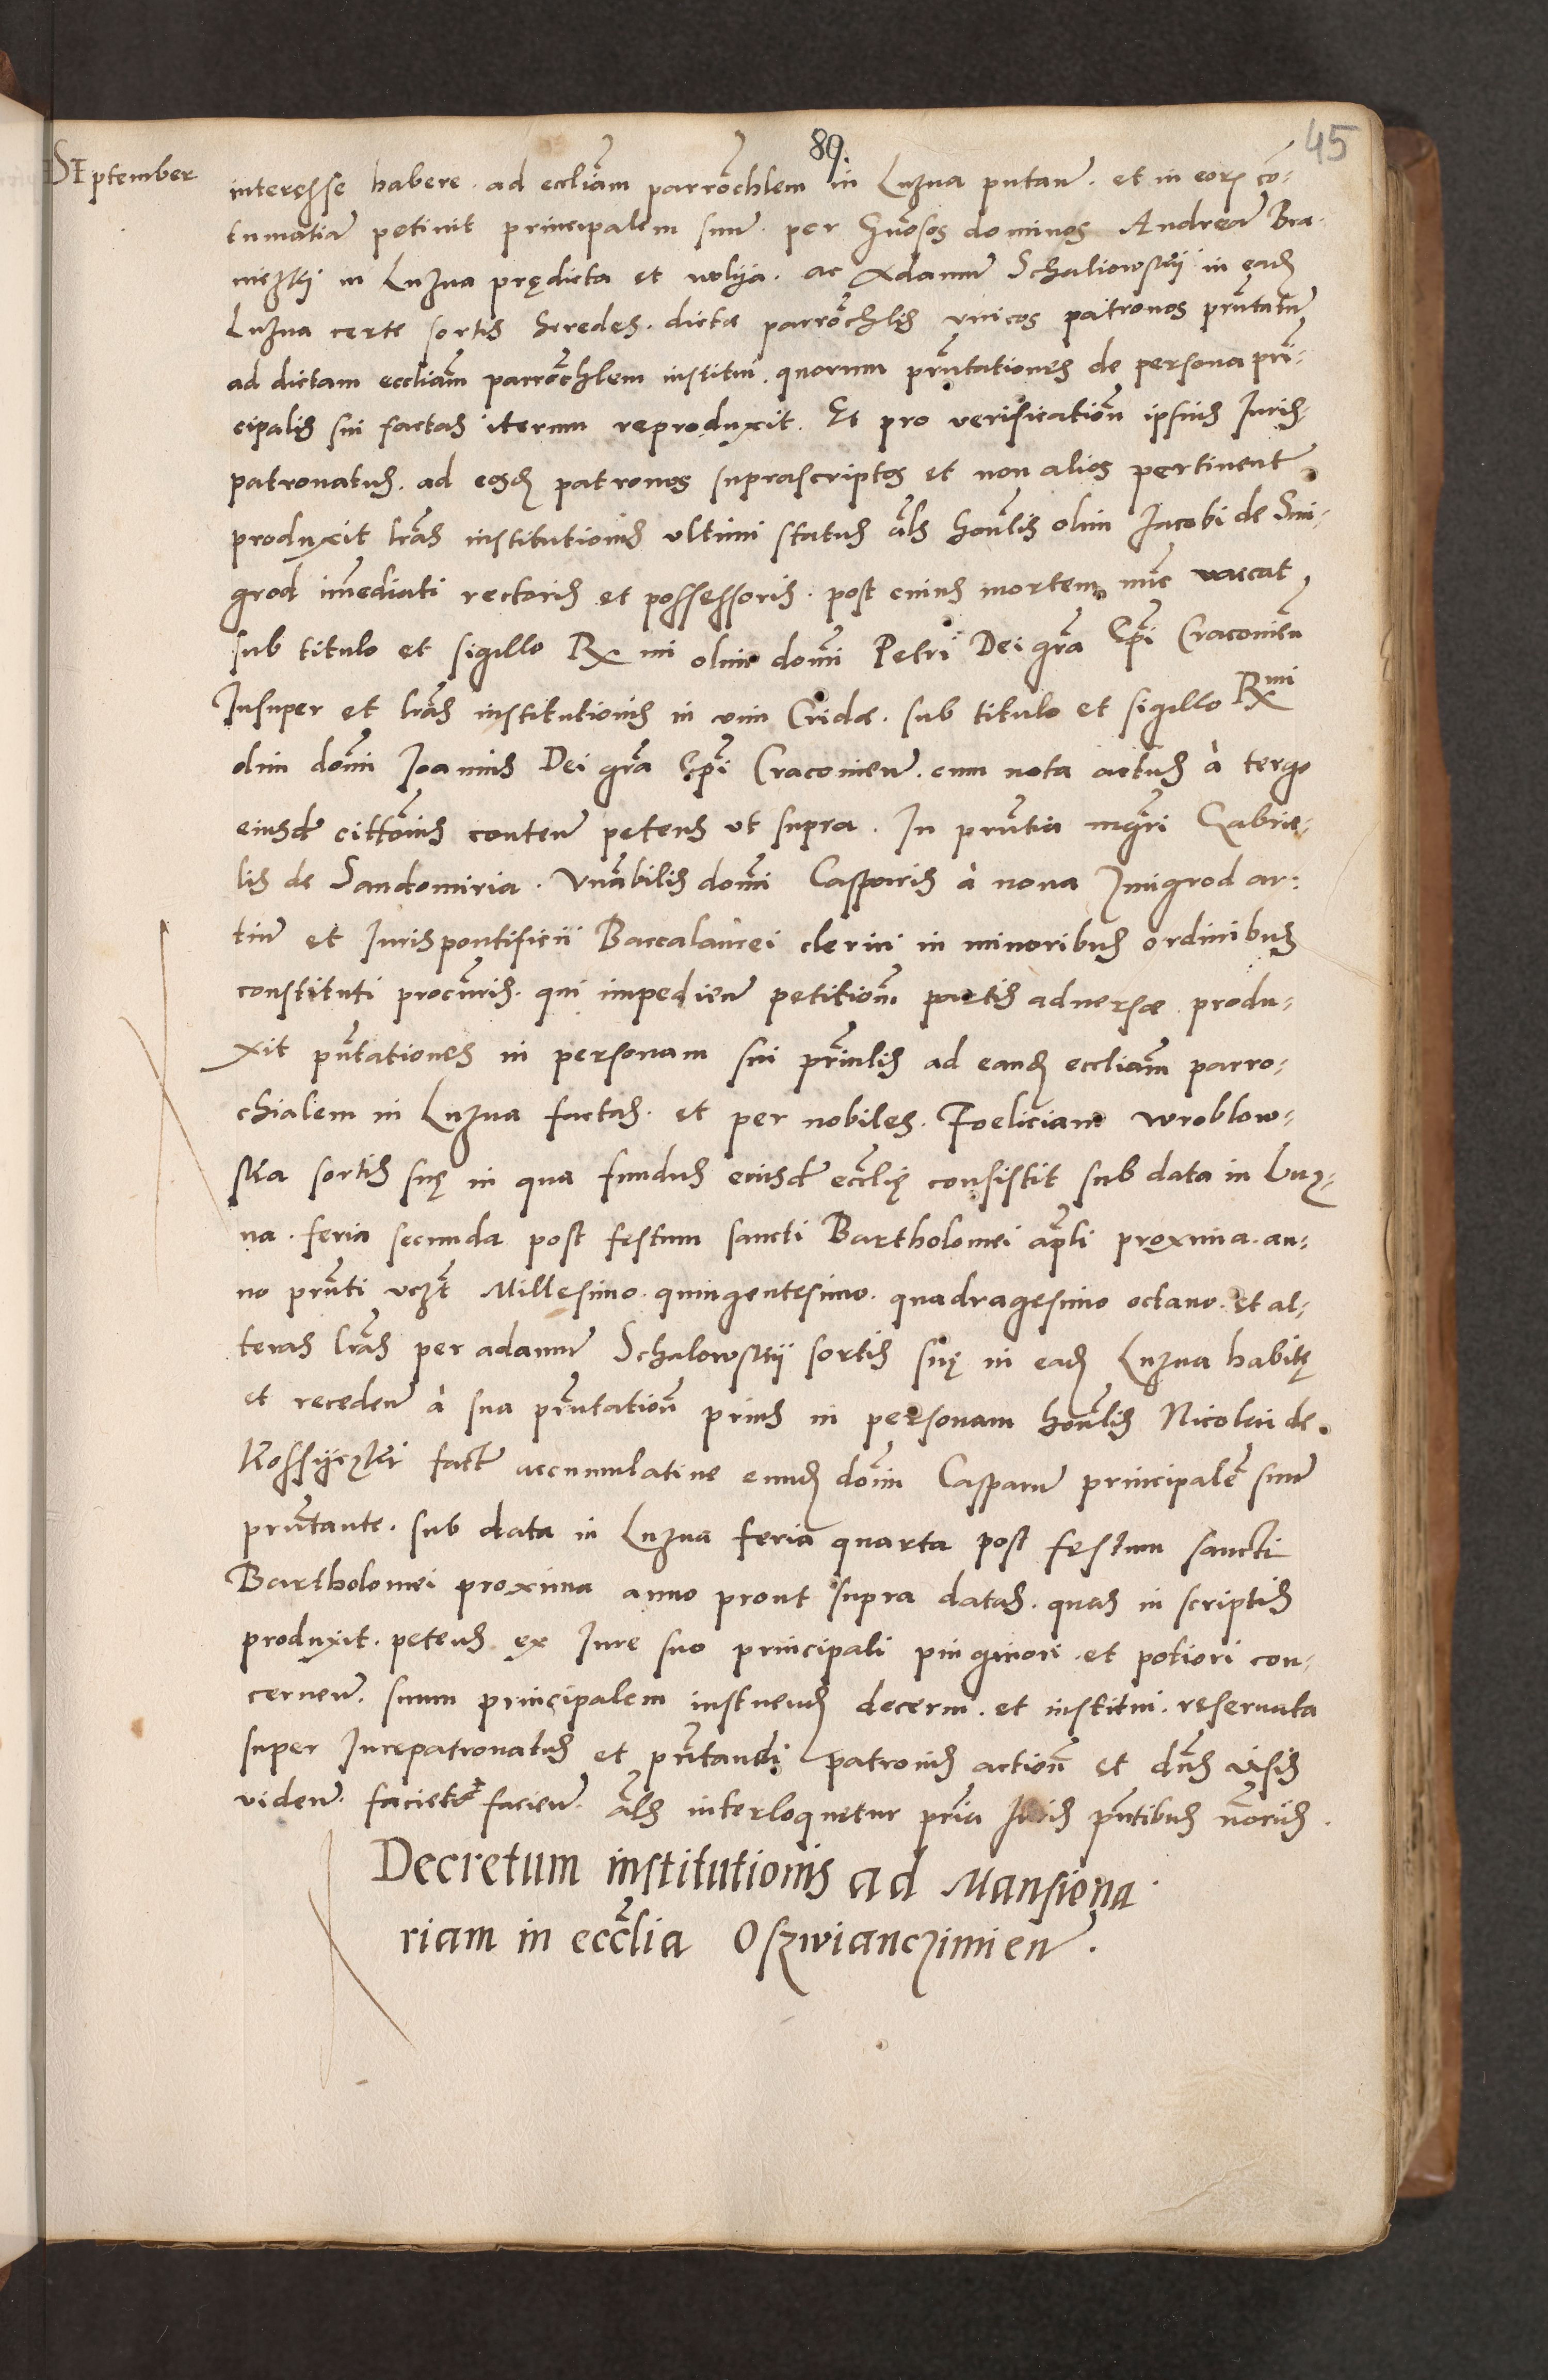 89.
45
September
interesse habere. ad ecclĩam parrochlem in Luzna putaň. et in eorꝫ cõ-
tumatiã petivit principalem suũ per gnõsos dominos Andreã Bra-
niczkij in Luzna prędicta et wolija. ac Adamũ Schaliowskij in eadꝫ
Luzna certe sortis heredes. dictæ parrochlis unicos patronos prñtatũ
ad dictam ecclĩam parrochlem institui. quorum prñtationes de persona prĩ-
cipalis sui factas iterum reproduxit. Et pro verificatiõn ipsius Juris-
patronatus. ad eosdꝫ patronos suprascriptos et non alios pertineñt
produxit lrãs institutionis ultimi status als hoñlis olim Jacobi de Smi-
grod im̃ediati rectoris et possessoris. post cuius mortem nũc vaccat,
sub titulo et sigillo Rx mi olim dom̃i Petri Dei grã Ep̃i Cracovieñ
Insuper et lrãs institutionis in vim Cridæ. sub titulo et sigillo Rx mi
olim dom̃i Joannis Dei grã Ep̃i Cracovieñ. cum nota actus à tergo
eiusd̃ cittõnis conteñ petens ut supra. In prñtia mgr̃i Gabrie-
lis de Sandomiria. Vnãbilis dom̃i Casparis à nova Zmigrod ar-
tiũ et Jurispontificii Baccalaurei clerici in minoribus ordinibus
constituti procũris. qui impedieñ petitiõnm partis adversæ produ-
xit pñtationes in personam sui prĩnlis ad eandꝫ ecclĩam parro-
chialem in Luzna factas. et per nobiles. Foeliciam wroblow-
ska sortis suę in qua fundus eiusd̃ eccl̃ię consistit sub data in Luz-
na. feria secunda post festum sancti Bartholomei ap̃li proxima. an-
no prñti vczt Millesimo. quingentesimo. quadragesimo octavo. Et al-
teras lrãs per adamũ Schalowskij sortis suę in eadꝫ Luzna habitę
et recedeñ à sua prñtatiõn prius in personam hoñlis Nicolai de
Kossijczki fact̃ accumulative eundꝫ dom̃ Casparũ principalẽ suũ
prñtante. sub data in Luzna feria quarta post festum sancti
Bartholomei proxima anno prout supra datas. quas in scriptis
produxit. petens ex Jure suo principali pinguiori et potiori con-
cerneñ. suum principalem instuendꝫ decerni. et institui. reservata
super Jurepatronatus et prñtandi patronis actiõn et dñs visis
videñ. faciet facieñ. als interloquetur prĩa Juris prñtibus nõriis.
Decretum institutionis ad Mansiona-
riam in eccl̃ia Oszwianczimieñ.